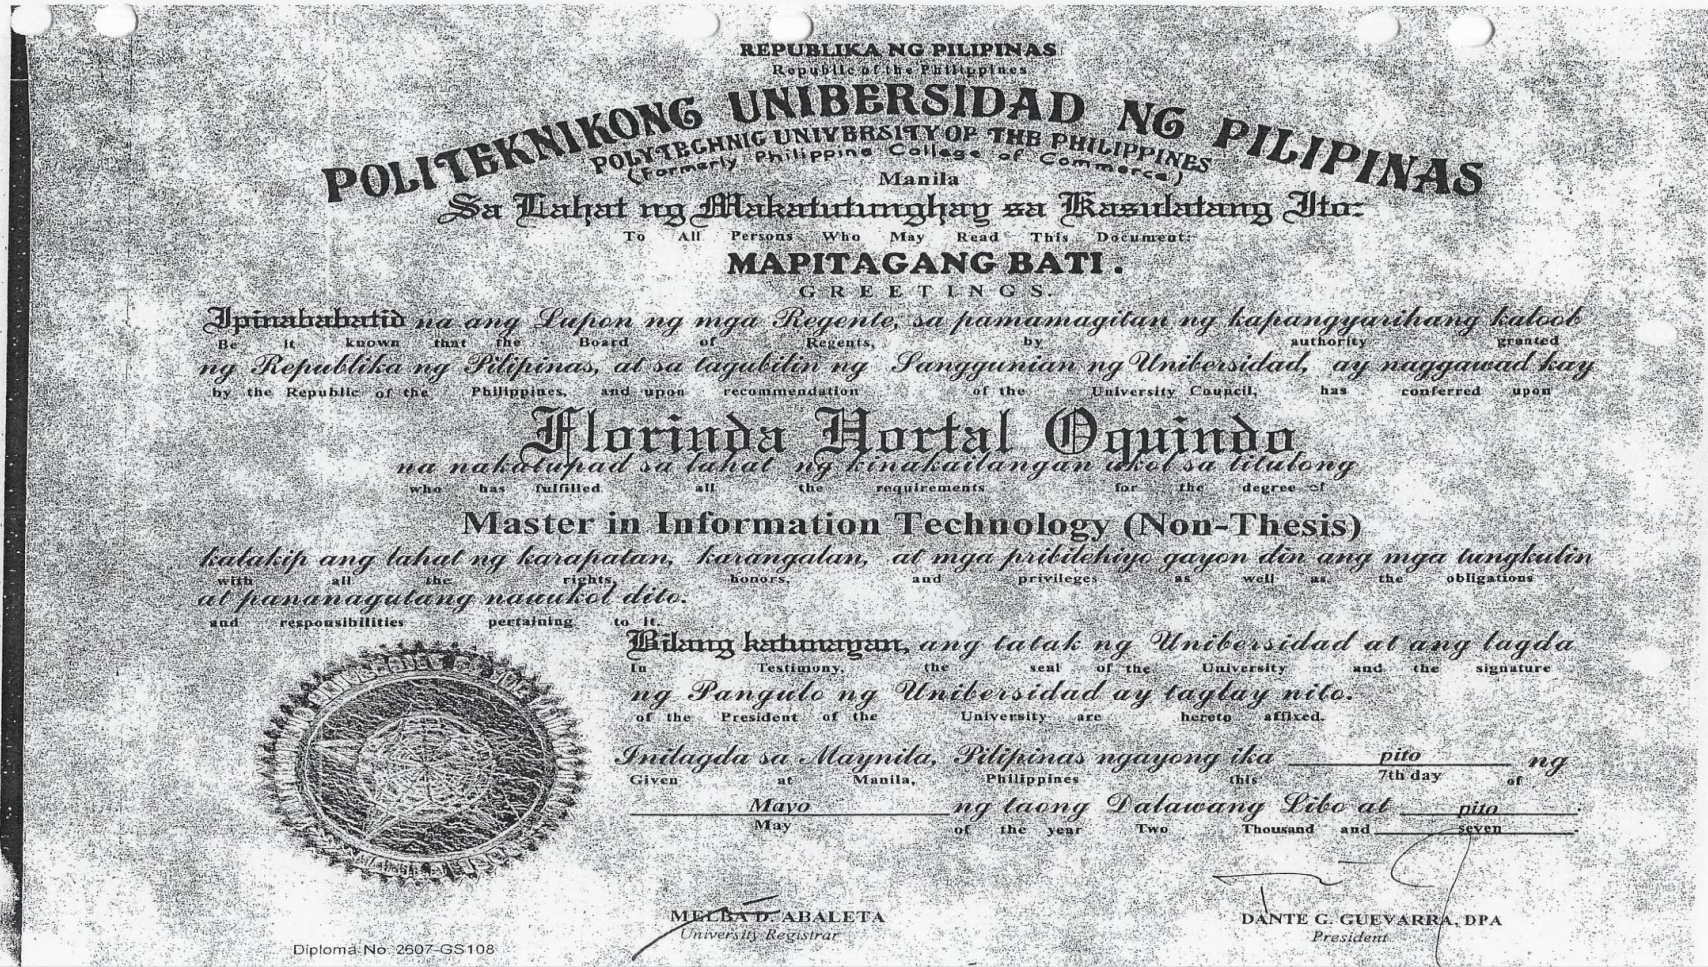 REPUBLIKA NG PILIPINAS
Republic of the Philippines
POLITEKNIKONG UNIBERSIDAD NG PILIPINAS
POLYTECHNIC UNIVERSITY OF THE PHILIPPINES
(Formerly Philippine College of Commerce)
Manila
Sa Lahat ng Makatutunghay sa Kasulatang Ito:
To All Persons Who May Read This Document:
MAPITAGANG BATI.
GREETINGS.
Ipinababatid na ang Lupon ng mga Regente, sa pamamagitan ng kapangyarihang kaloob
Be it known that the Board of Regents, by authority granted
ng Republika ng Pilipinas, at sa tagubilin ng Sanggunian ng Unibersidad, ay naggawad kay
by the Republic of the Philippines, and upon recommendation of the University Council, has conferred upon
Florinda Hortal Oquindo
na nakatupad sa lahat ng kinakailangan ukol sa titulong
who has fulfilled all the requirements for the degree of
Master in Information Technology (Non-Thesis)
kalakip ang lahat ng karapatan, karangalan, at mga pribilehiyo gayon din ang mga tungkulin
with all the rights, honors, and privileges as well as the obligations
at pananagutang nauukol dito.
and responsibilities pertaining to it.
Bilang katunayan, ang tatak ng Unibersidad at ang lagda
In Testimony, the seal of the University and the signature
ng Pangulo ng Unibersidad ay taglay nito.
of the President of the University are hereto affixed.
Inilagda sa Maynila, Pilipinas ngayong ika pito ng
Given at Manila, Philippines this 7th day of
Mayo ng taong Dalawang Libo at pito.
May of the year Two Thousand and seven
MELBA D. ABALETA
University Registrar
DANTE G. GUEVARRA, DPA
President
Diploma No. 2607-GS108